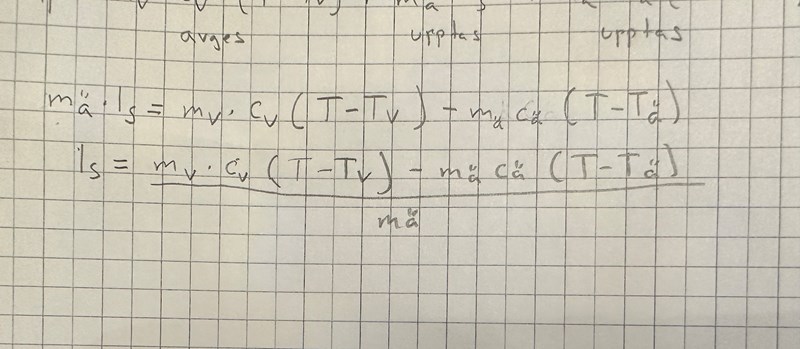 avges upptas upptas
mä · ls = mv · cv (T-Tv) - mä cä (T-Tä)
ls = mv · cv (T-Tv) - mä cä (T-Tä)
mä